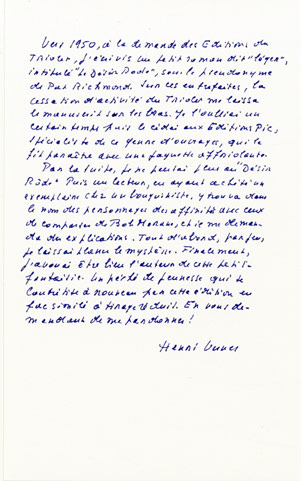 Vers 1950, à la demande des Editions du
Triolet, j'écrivis un petit roman dit "léger",
intitulé "Le Désir Rôde", sous le pseudonyme
de Pat Richmond. Sur ces entrefaites, la
cessation d'activité du Triolet me laissa
le manuscrit sur les bras. Je l'oubliai un
certain temps puis le cédai aux Editions Pic,
spécialiste de ce genre d'ouvrages, qui le
fit paraître avec une jaquette affriolante.
Par la suite, je ne pensai plus au "Désir
Rôde". Puis un lecteur, en ayant acheté un
exemplaire chez un bouquiniste, trouva dans
le nom des personnages des affinités avec ceux
de comparses de Bob Morane, et il me deman-
da des explications. Tout d'abord, par jeu,
je laissai planer le mystère. Finalement,
j'avouai être bien l'auteur de cette petite
fantaisie. Un péché de jeunesse qui se
concrétise à nouveau par cette édition en
fac similé à tirage réduit. En vous de-
mandant de me pardonner !
Henri Vernes